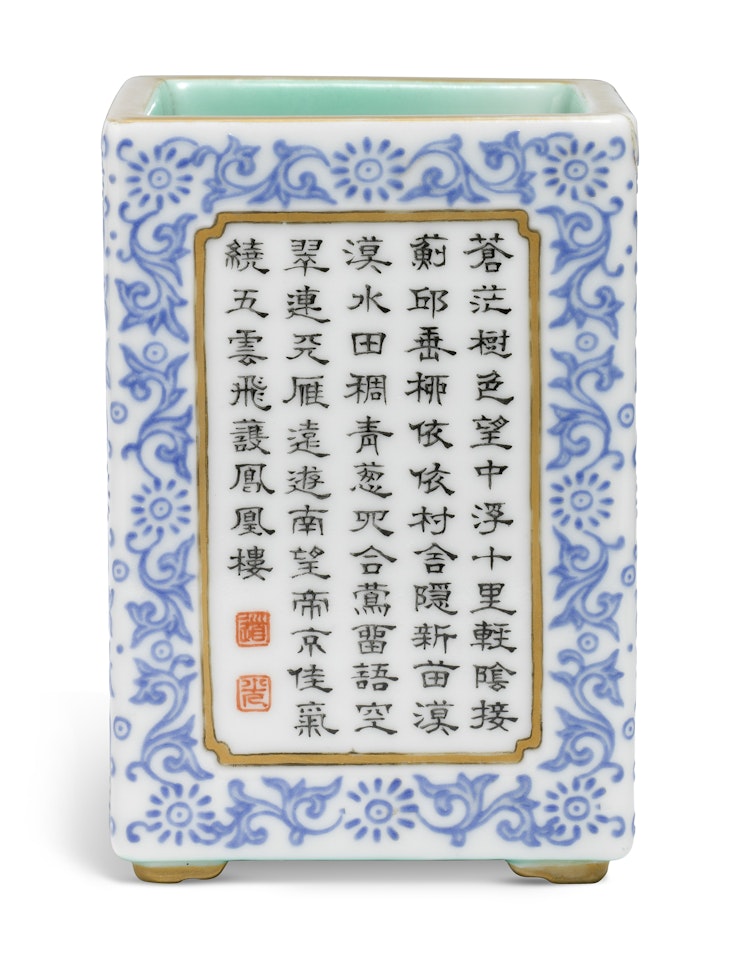 蒼茫樹色望中浮十里輕陰接
薊邱垂栁依依村舍隱新苗漠
漠水田稠青葱四合鶯畱語空
翠連天雁遠遊南望帝京佳氣
繞五雲飛護鳳凰樓
道
光